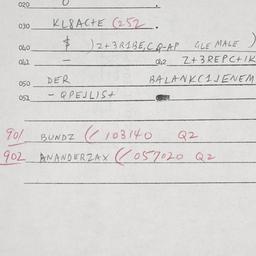 020
030 KL8AC+E (252 .
040 $ ) Z+3R1BE, C Q-AP GLE MALE )
041 - 042 Z+3REPC+1K
050 DER BALANK(1JENEM
051 - QPEJLIS+
901 BUNDZ (/ 103140 Q2
902 ANANDERZAX (/ 057020 Q2